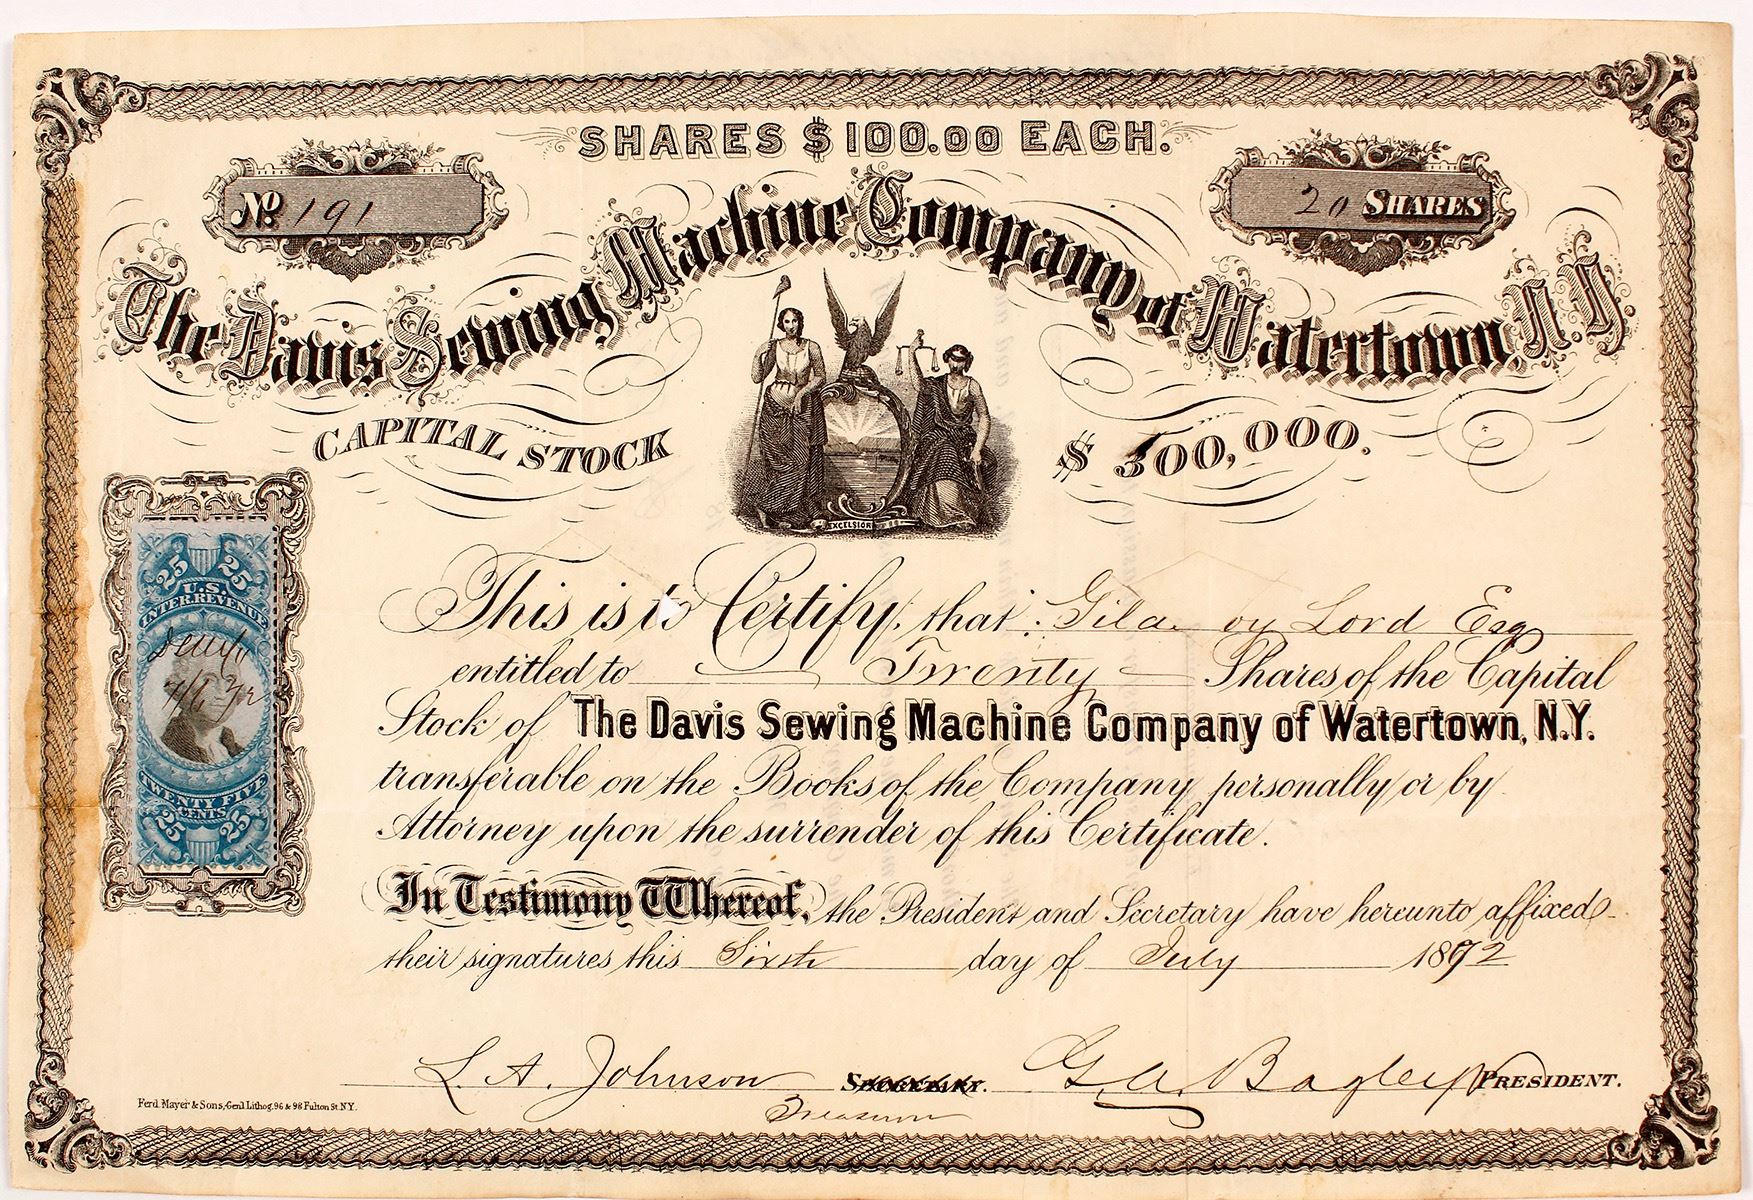 SHARES $100.00 EACH.
No. 191
20 SHARES
The Davis Sewing Machine Company of Watertown, N.Y.
CAPITAL STOCK
$ 500,000.
EXCELSIOR
25 25
U.S.
INTER. REVENUE
TWENTY FIVE
CENTS
25 25
This is to Certify, that Lord Esq
entitled to Twenty Shares of the Capital
Stock of The Davis Sewing Machine Company of Watertown, N.Y.
transferable on the Books of the Company personally or by
Attorney upon the surrender of this Certificate.
In Testimony Whereof, the President and Secretary have hereunto affixed
their signatures this Sixth day of July 1872
L. A. Johnson SECRETARY. G. A. Bagley PRESIDENT.
Treasurer
Ferd. Mayer & Sons, Gen'l Lithog. 96 & 98 Fulton St. N.Y.